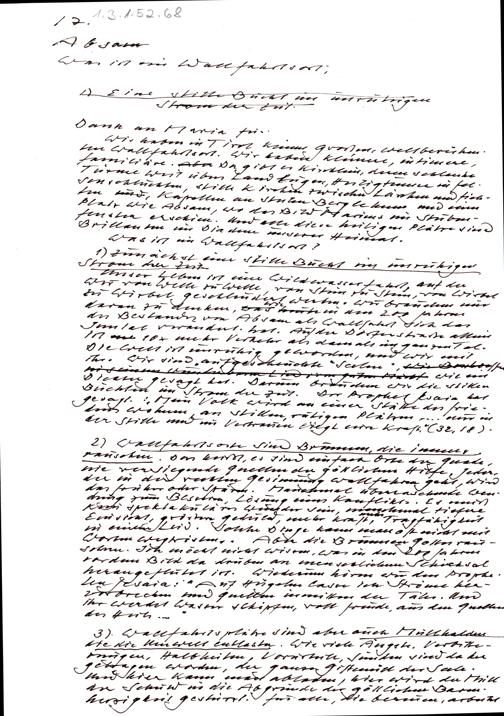 12.
1.3.1.52.68
Absam
Was ist ein Wallfahrtsort:
1) Eine stille Bucht im unruhigen
Strom der Zeit.
Dank an Maria für.
Wir haben in Tirol keine großen, weltberühm-
ten Wallfahrtsorte. Wir haben kleinere, intimere,
familiäre. Da gibt es Kirchlein, deren schlanke
Türme weit übers Land
stille Kirchen zwischen Lärchen und
Kapellen an steilen Berglehnen und
Platz wie Absam, wo das Bild Mariens im Stuben-
fenster erschien. Und alle diese heiligen Plätze sind
Brillanten im Diadem unserer Heimat.
Was ist ein Wallfahrtsort?
1) Zunächst eine stille Bucht im unruhigen
Strome der Zeit
Unser Leben ist eine Wildwasserfahrt, auf der
wir von Welle zu Welle, von Sturm zu Sturm, von Wirbel
zu Wirbel geschleudert werden. Wir brauchen nur
daran zu denken, was in den 200 Jahren
des Bestandes von Absam als Wallfahrt sich das
Inntal verändert hat. Auf der Dorfstraße allein
ist 10x mehr Verkehr als damals im ganzen Tal.
Die Welt ist unruhig geworden, und wir mit
ihr. Wir sind
Dichter gesagt hat. Darum brauchen wir die stillen
Buchten im Strom der Zeit. Der Prophet Isaia hat
gesagt: "Mein Volk wird an einer Stätte des Frie-
dens wohnen, an stillen, ruhigen Plätzen ... nur in
der Stille und im Vertrauen liegt eure Kraft." (32,18).
2) Wallfahrtsorte sind Brunnen, die immer
rauschen. Das heißt, es sind einfach Orte der Gnade,
nie versiegende Quellen der göttlichen Hilfe. Jeder,
der in der rechten Gesinnung wallfahren geht, wird
das früher oder später. Manchmal überraschende Wen-
dung zum Besseren, Lösung eines Konflikts. Es muß
kein spektakuläres Wunder sein, manchmal tiefere
Einsicht, größere Geduld, mehr Kraft, Tragfähigkeit
in einem Leid. Solche Dinge kann man oft nicht mit
Worten wegwischen. Aber die Brunnen Gottes rau-
schen. Ich möcht nicht wissen, was in den 200 Jahren
vor dem Bild da drüben an menschlichem Schicksal
heraufgeflutet ist. Wiederum hören wir den Prophe-
ten Jesaia: "Auf Hügeln lasse ich Ströme her-
vorbrechen und Quellen inmitten der Täler. Und
ihr werdet Wasser schöpfen, voll Freude, aus den Quellen
des Heils...
3) Wallfahrtsplätze sind aber auch Müllhalden
die die Umwelt entlasten. Wie viele Ängste, Verbitte-
rungen, Halbheiten, Vorurteile, Sünden sind da her
getragen worden. Der ganze Giftmüll der Seele.
Und hier kann man abladen, hier wird der Müll
der Schuld in die Abgründe der göttlichen Barm-
herzigkeit gestürzt. Für alle, die bereuen,